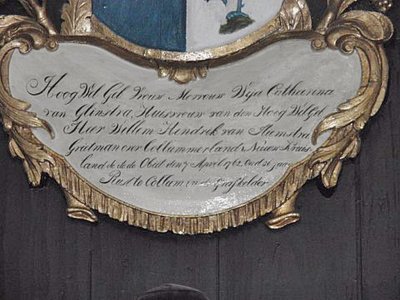 Hoog Wel Gel Vrouw Mevrouw Wija Catharina
van Glinstra Huisvrouw van den Hoog Wel Gel
Heer Willem Hendrik van Humstra
Grietman over Collummerland & Nieuw Kruis
land &c &c &c Obiit den 7 April 1762 Oud 31 jaar
Rust te Collum in de Grafkelder